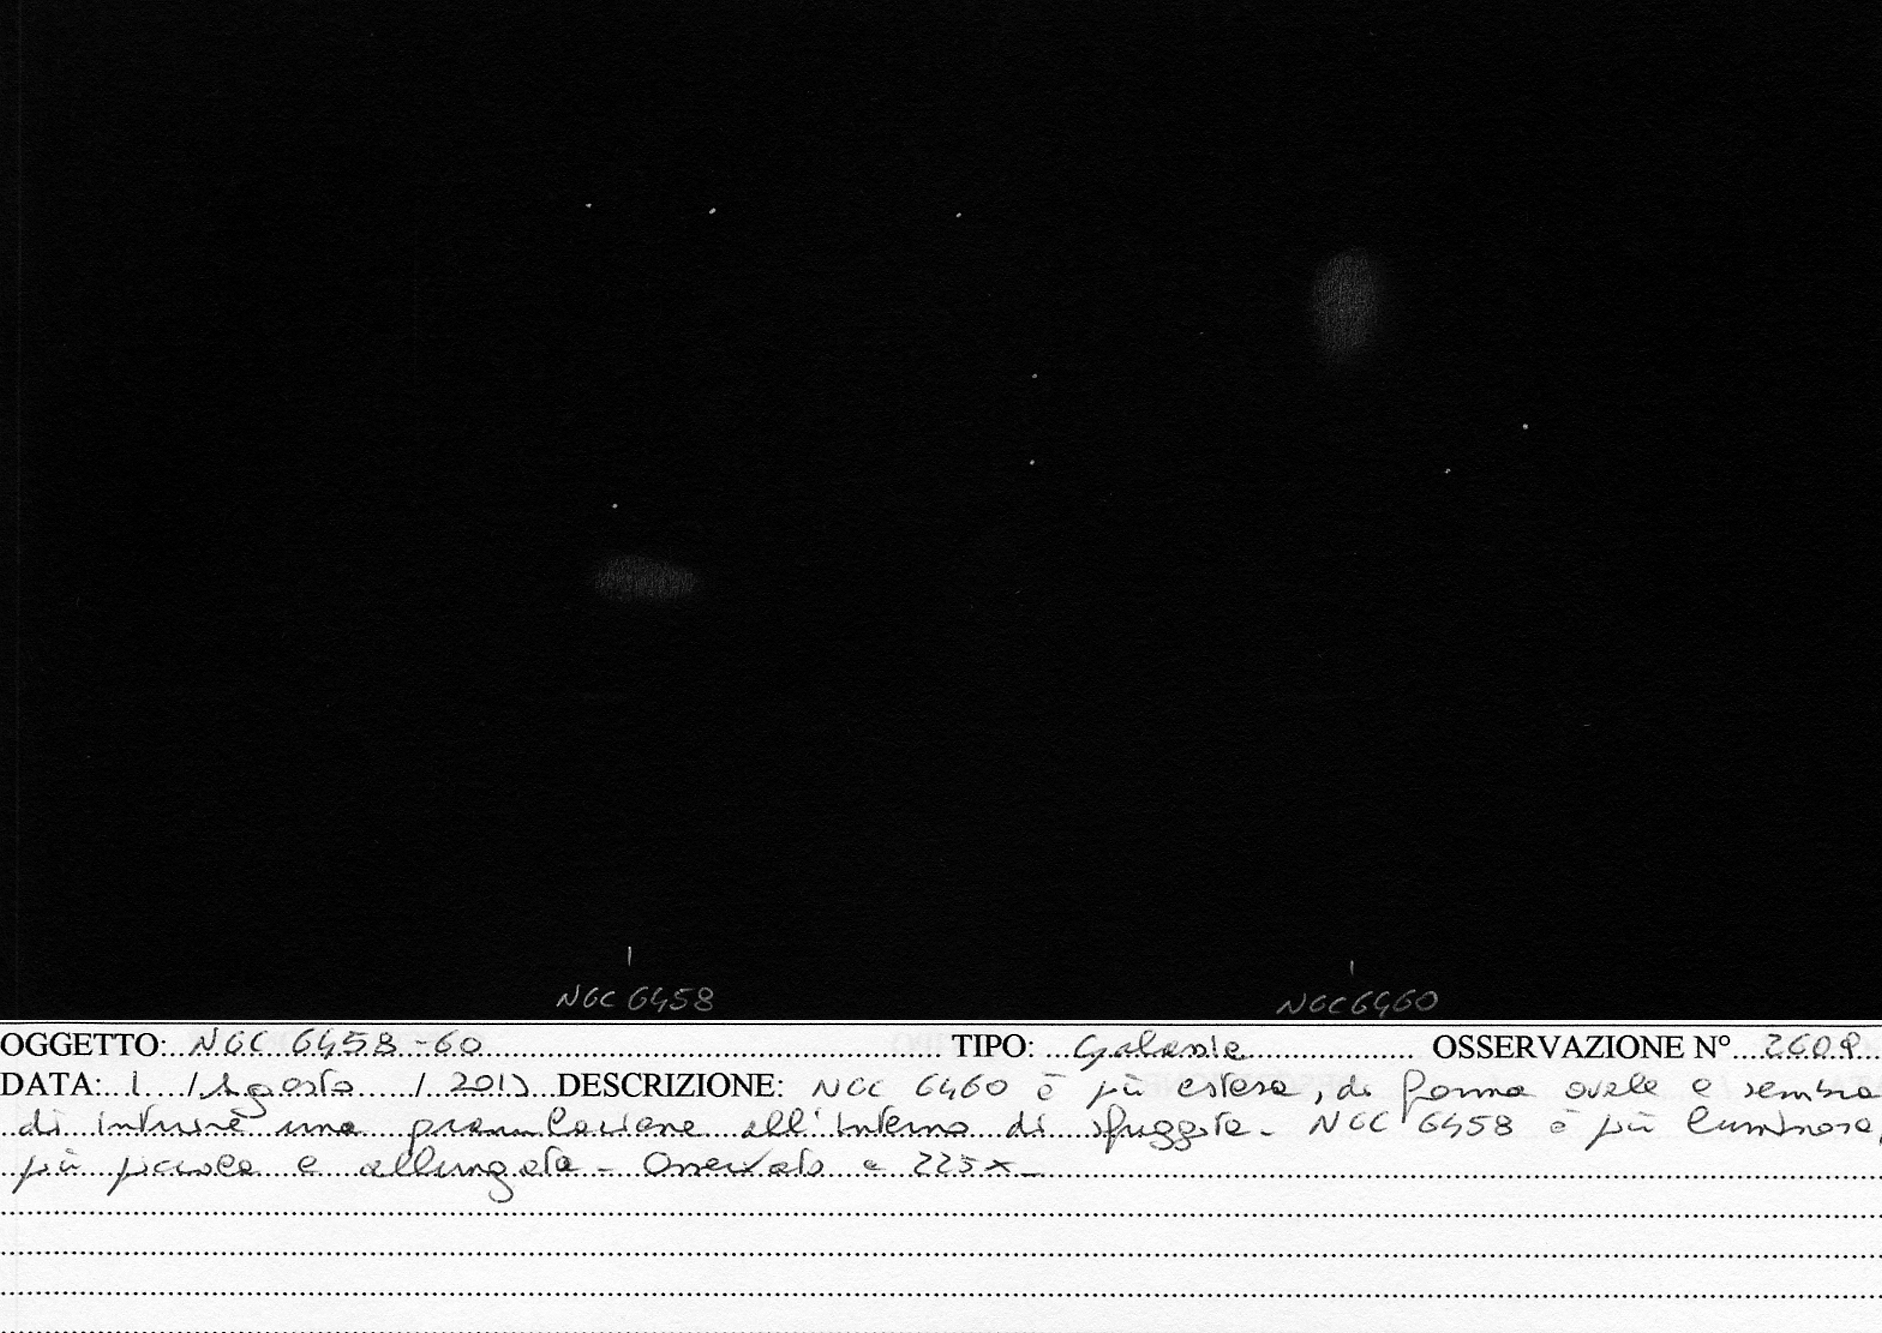 NGC 6458
NGC 6460
OGGETTO: NGC 6458-60 TIPO: Galassie OSSERVAZIONE N° 2609
DATA: 1 / Agosto / 2013 DESCRIZIONE: NGC 6460 è più estesa, di forma ovale e sembra
di intuire una granulazione all'interno di sfuggita. NGC 6458 è più luminosa,
più piccola e allungata. Osservato a 225x.